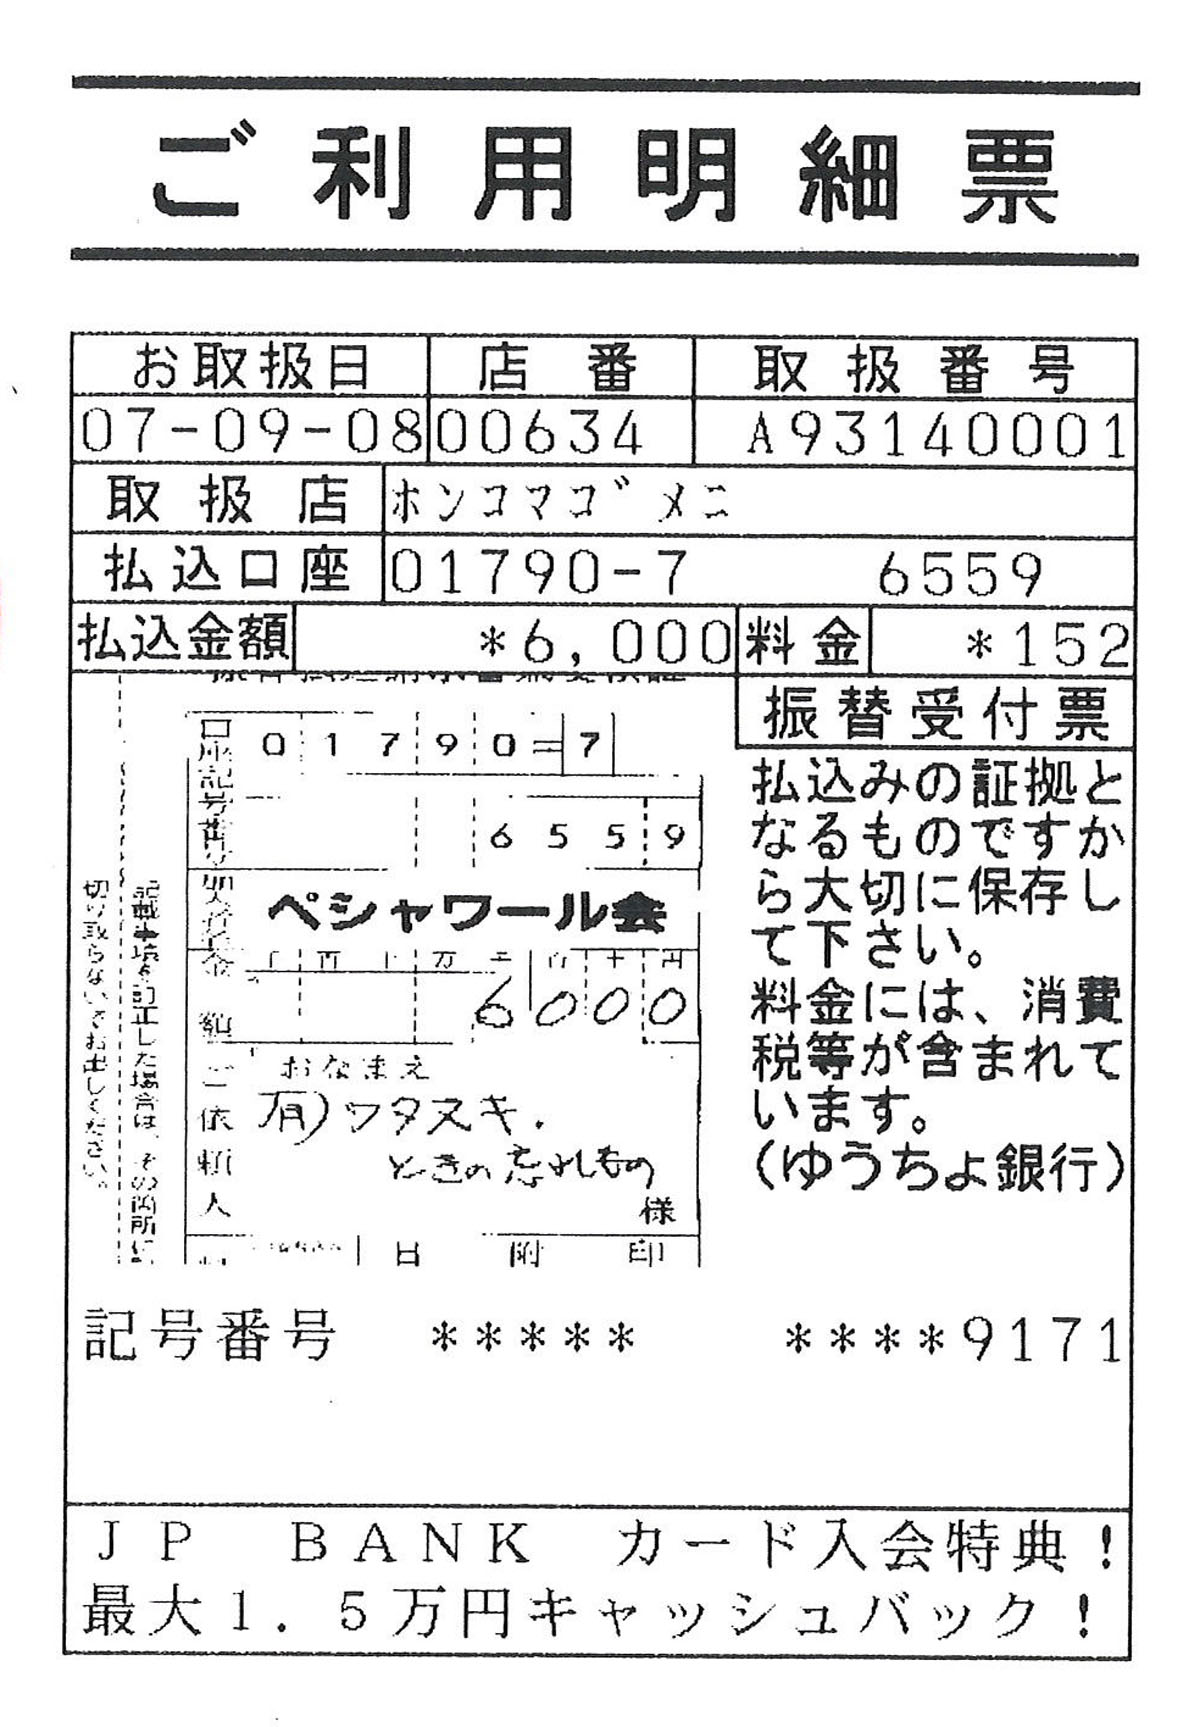 ご利用明細票
お取扱日 店番 取扱番号
07-09-08 00634 A93140001
取扱店 ホンコマゴメニ
払込口座 01790-7 6559
払込金額 *6,000 料金 *152
振替受付票
払込みの証拠と
なるものですか
ら大切に保存し
て下さい。
料金には、消費
税等が含まれて
います。
(ゆうちょ銀行)
口座記号番号
01790=7
6559
ペシャワール会
金額
6000
おなまえ
ご依頼人
有)ワタスキ.
ときの忘れもの
様
日附印
切り取らないでお出しください。
記号番号 ***** ****9171
JP BANK カード入会特典!
最大1.5万円キャッシュバック!